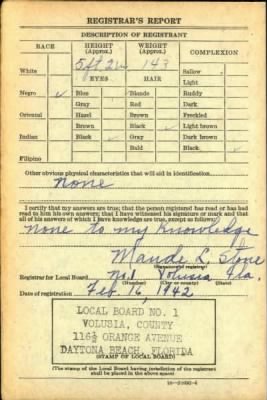 REGISTRAR'S REPORT
DESCRIPTION OF REGISTRANT
RACE HEIGHT (Approx.) WEIGHT (Approx.) COMPLEXION
White 5 ft 2 in 143 Sallow
EYES HAIR Light
Negro ✓ Blue Blonde Ruddy
Gray Red Dark
Oriental Hazel Brown Freckled
Brown Black ✓ Light brown
Indian Black ✓ Gray Dark brown
Bald Black ✓
Filipino
Other obvious physical characteristics that will aid in identification
None
I certify that my answers are true; that the person registered has read or has had
read to him his own answers; that I have witnessed his signature or mark and that
all of his answers of which I have knowledge are true, except as follows:
None to my knowledge
Maude L. Stone
(Signature of registrar)
Registrar for Local Board No. 1 Volusia Fla.
(Number) (City or county) (State)
Date of registration Feb. 16, 1942
LOCAL BOARD NO. 1
VOLUSIA, COUNTY
116½ ORANGE AVENUE
DAYTONA BEACH, FLORIDA
(STAMP OF LOCAL BOARD)
(The stamp of the Local Board having jurisdiction of the registrant
shall be placed in the above space)